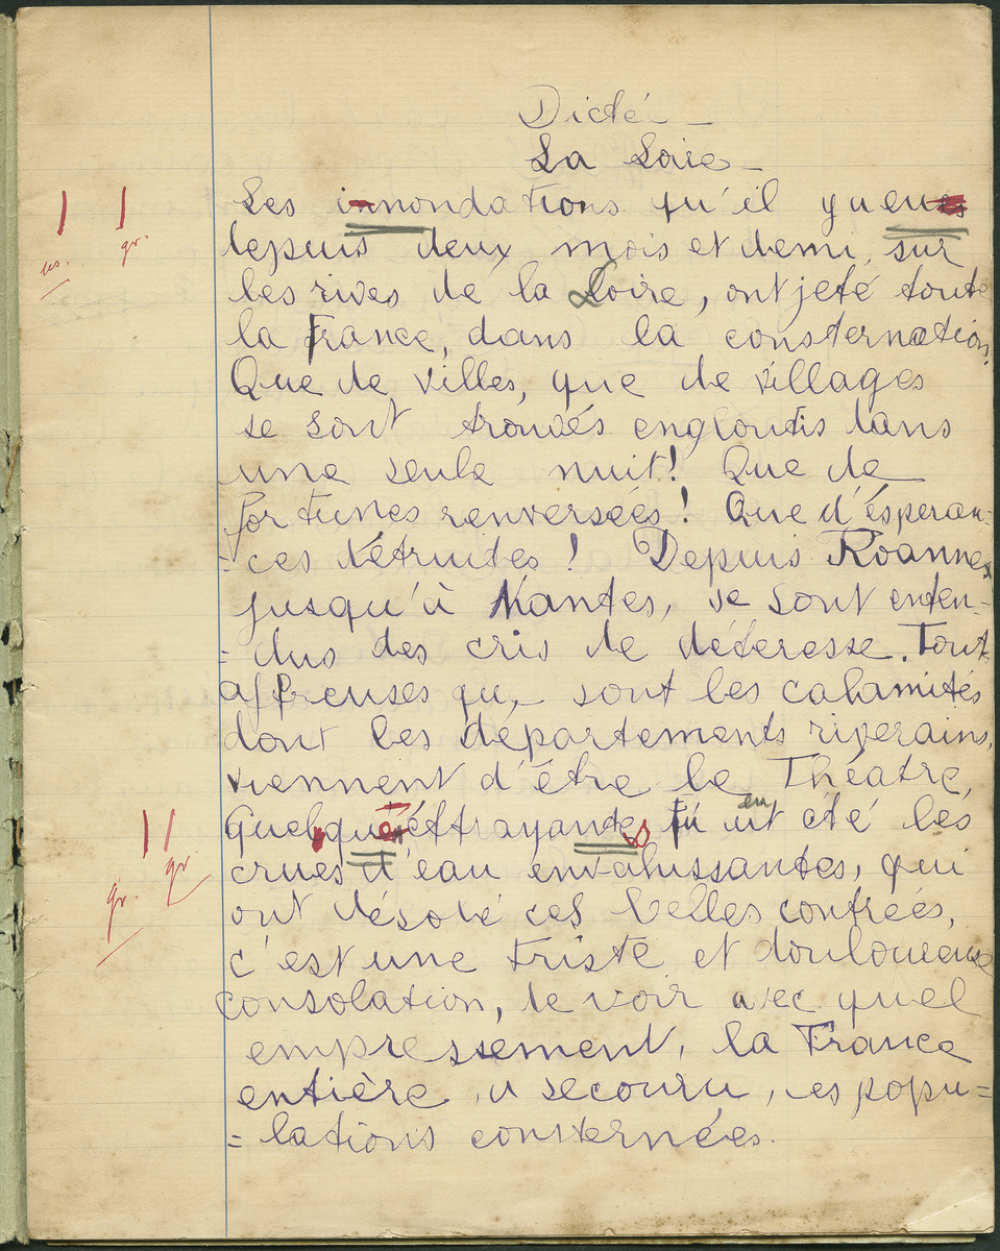 Dictéi –
La Loire –
Les innondations qu'il y a eues
depuis deux mois et demi, sur
les rives de la Loire, ont jeté toute
la France, dans la consternation.
Que de villes, que de villages
se sont trouvés engloutis dans
une seule nuit! Que de
fortunes renversées! Que d'ésperan-
-ces détruites! Depuis Roanne,
jusqu'à Nantes, se sont enten-
= dus des cris de déteresse. Tout
affreuses qu, sont les calamités
dont les départements riverains,
viennent d'être le Théatre,
us. gr.
gr. gr
Quelque éffrayantes eu ont été les
crues d'eau envahissantes, qui
ont désolé ces belles contrées,
c'est une triste et douloureuse
consolation, de voir avec quel
empressement, la France
entière, a secouru, les popu=
= lations consternées.